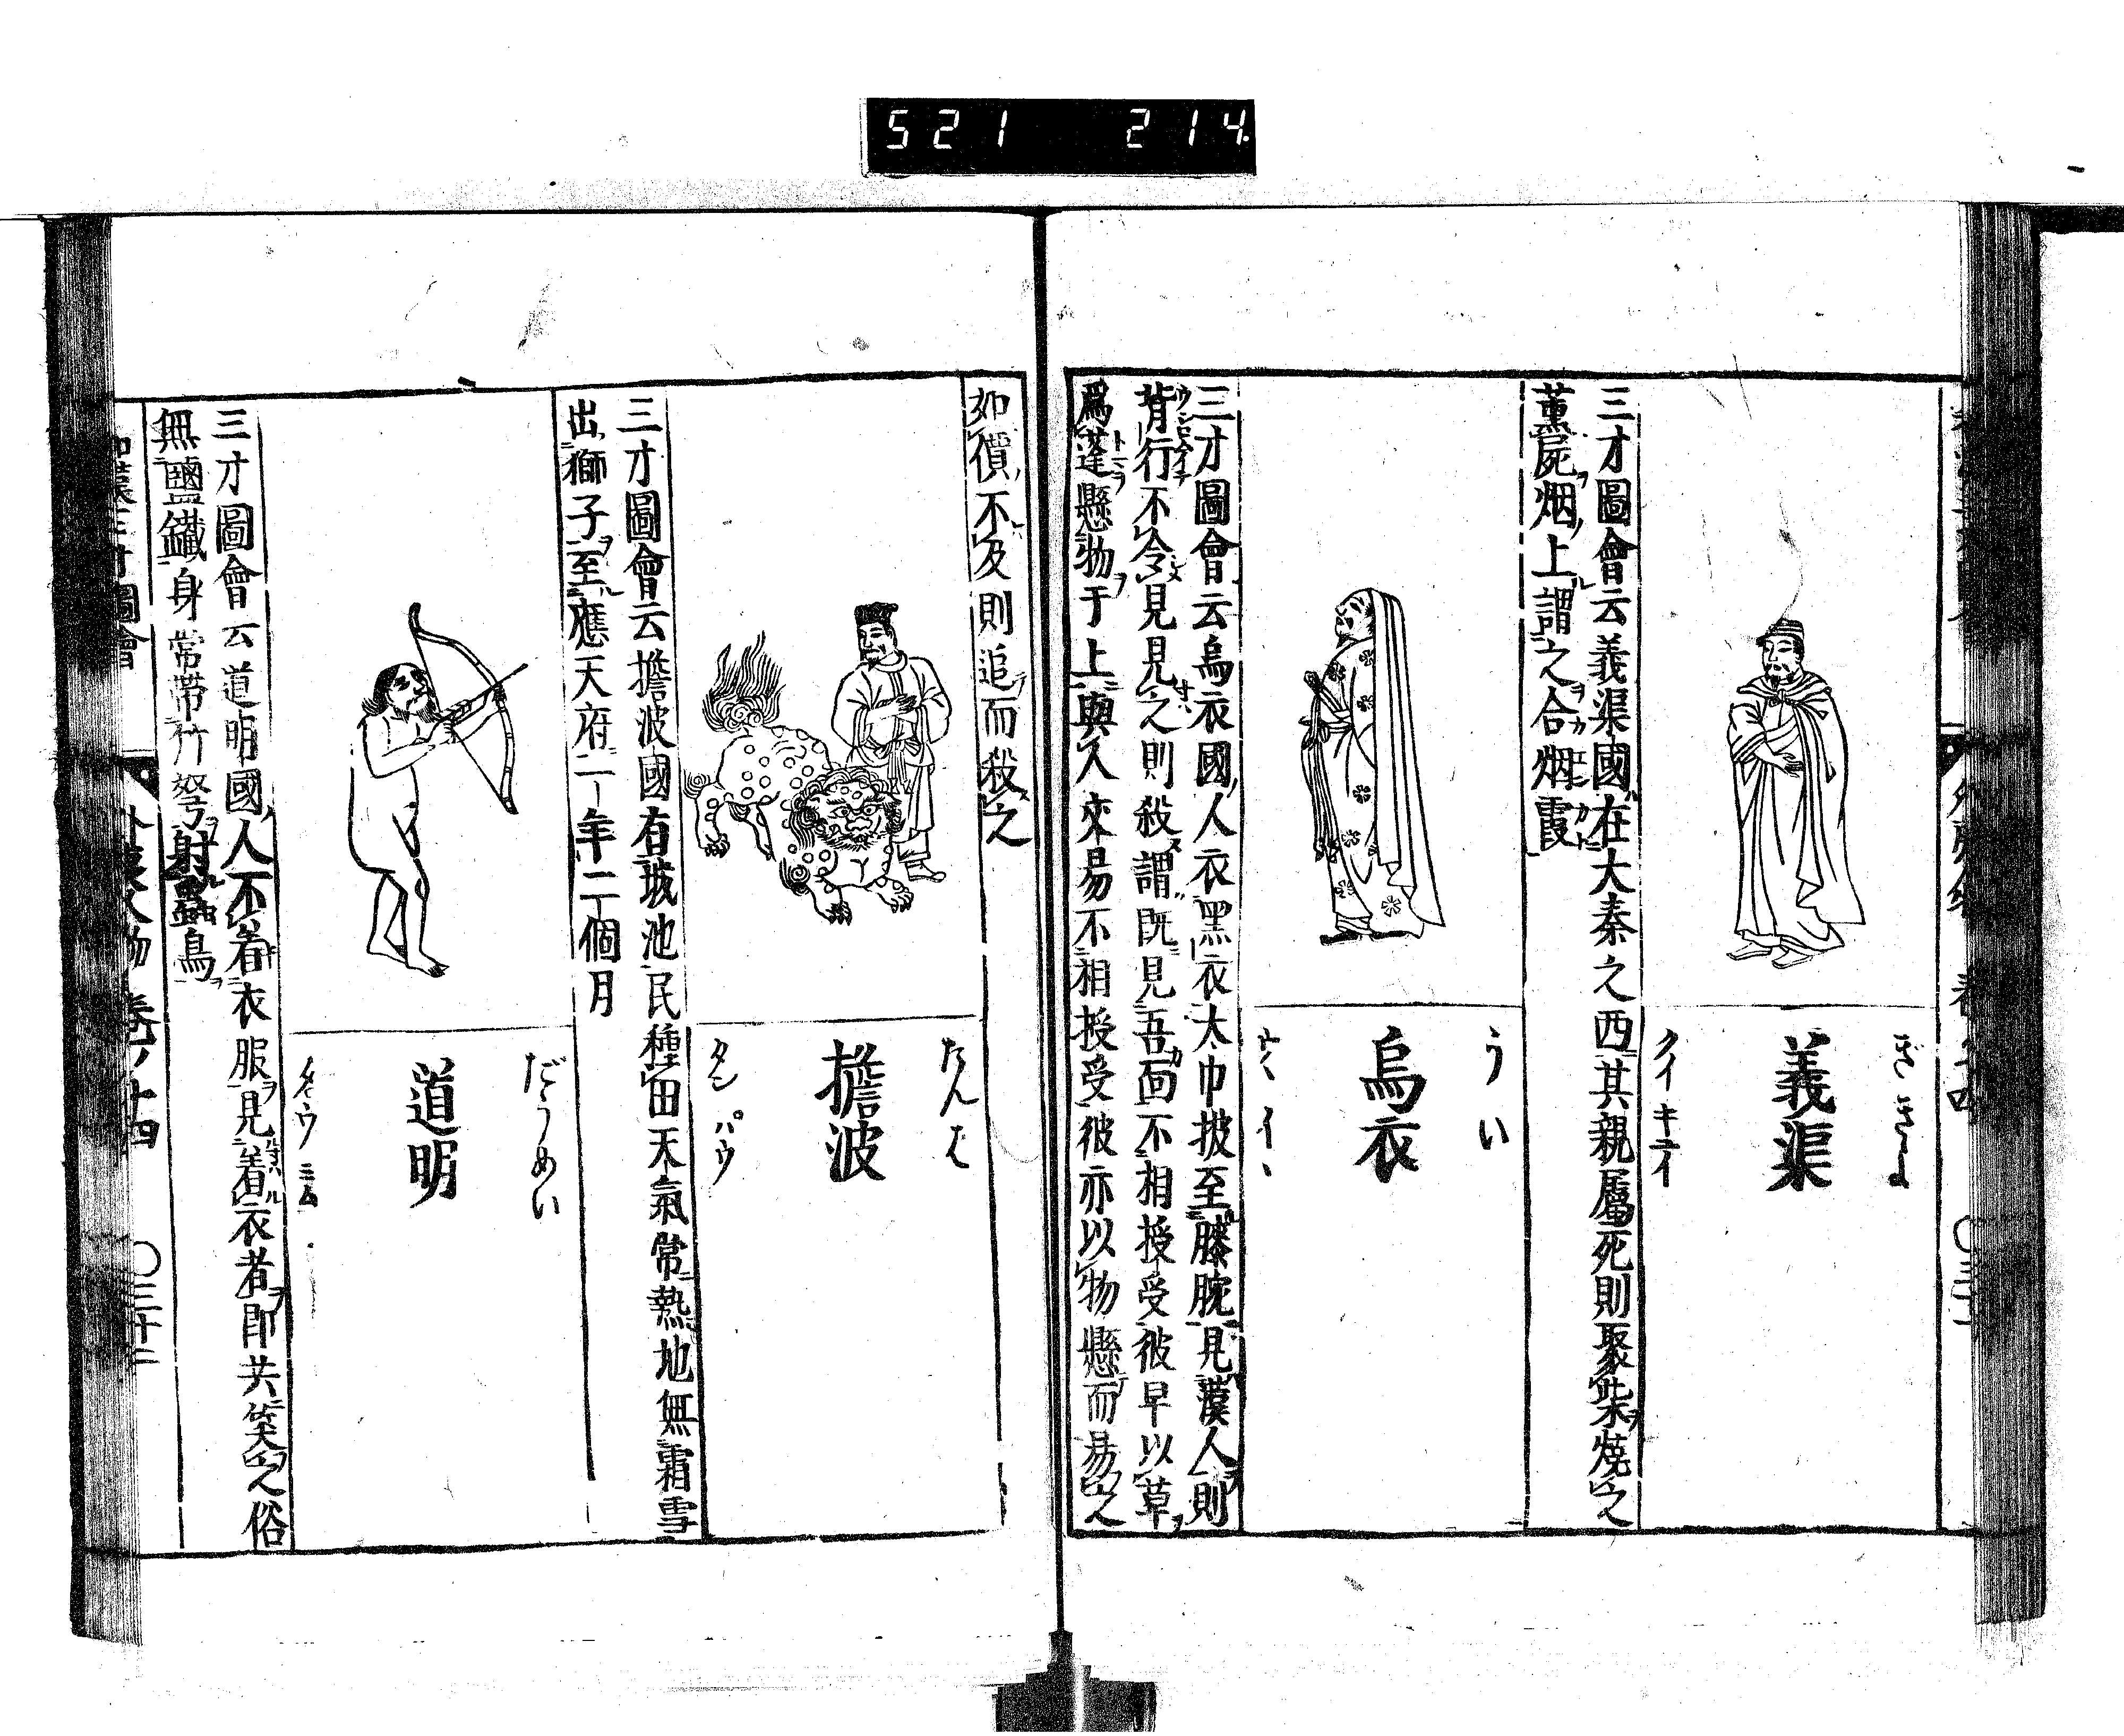 521 214
ぎきよ
義渠
クイ キユイ
三才圖會云義渠國在大秦之西其親屬死則聚柴燒之
薫屍烟上謂之合烟霞
うい
烏衣
ウヽ イヽ
三才圖會云烏衣國人衣黑衣太巾披至膝腕見漢人則
背行不令見見之則殺謂既見吾面不相授受彼早以草
爲蓬懸物于上與人來易不相授受彼亦以物懸而易之
如價不及則追而殺之
たんば
擔波
タン パウ
三才圖會云擔波國有城池民種田天氣常熱地無霜雪
出獅子至應天府一年二個月
だうめい
道明
タ○ウ ミム
三才圖會云道明國人不着衣服見着衣者即共笑之俗
無鹽鐵身常帶竹弩射蟲鳥
和漢三才圖會 外夷人物 卷ノ十四 〇三十二